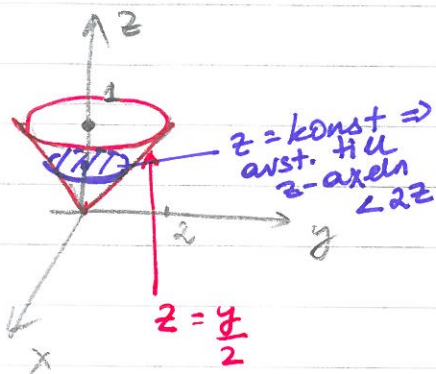 z
1
z = konst ⇒
avst. till
z-axeln
< 2z
2
y
z = y/2
x